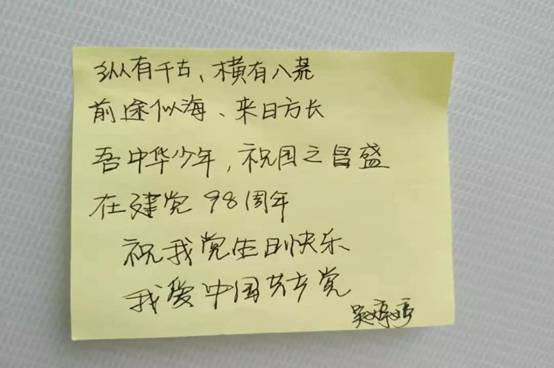 纵有千古、横有八荒
前途似海、来日方长
吾中华少年，祝国之昌盛
在建党98周年
祝我党生日快乐
我爱中国共产党
吴婷婷